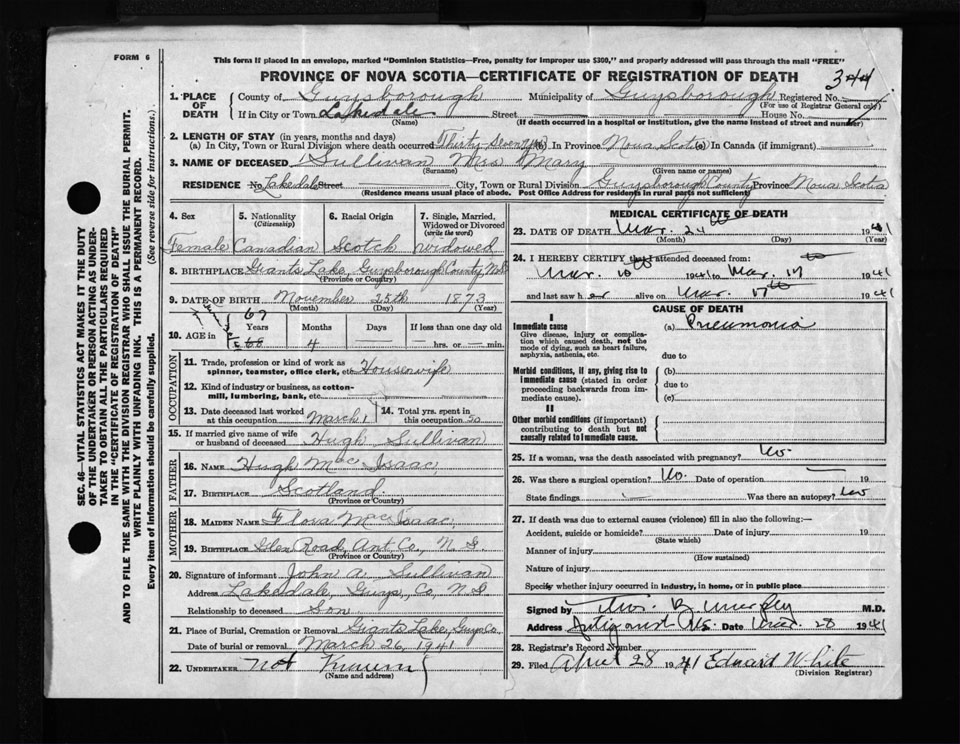 FORM 6
This form if placed in an envelope, marked "Dominion Statistics—Free, penalty for improper use $300," and properly addressed will pass through the mail "FREE"
PROVINCE OF NOVA SCOTIA—CERTIFICATE OF REGISTRATION OF DEATH
344
1. PLACE OF DEATH
County of Guysborough Municipality of Guysborough Registered No.
(For use of Registrar General only)
If in City or Town Lakedale Street House No.
(Name) (If death occurred in a hospital or institution, give the name instead of street and number)
2. LENGTH OF STAY (in years, months and days)
(a) In City, Town or Rural Division where death occurred Thirty Seven yrs (b) In Province Nova Scotia (c) In Canada (if immigrant)
3. NAME OF DECEASED Sullivan Mrs Mary
(Surname) (Given name or names)
RESIDENCE No. Lakedale Street City, Town or Rural Division Guysborough County Province Nova Scotia
(Residence means usual place of abode. Post Office Address for residents in rural parts not sufficient)
4. Sex
Female
5. Nationality
(Citizenship)
Canadian
6. Racial Origin
Scotch
7. Single, Married, Widowed or Divorced
(write the word)
widowed
8. BIRTHPLACE Giants Lake, Guysborough County, N.S.
(Province or Country)
9. DATE OF BIRTH November 25th 1873
(Month) (Day) (Year)
10. AGE in
67
Years Months Days If less than one day old
68 4 hrs. or min.
OCCUPATION
11. Trade, profession or kind of work as spinner, teamster, office clerk, etc. Housewife
12. Kind of industry or business, as cotton-mill, lumbering, bank, etc.
13. Date deceased last worked at this occupation March 1
14. Total yrs. spent in this occupation 50
15. If married give name of wife or husband of deceased Hugh Sullivan
FATHER
16. NAME Hugh Mac Isaac
17. BIRTHPLACE Scotland
(Province or Country)
MOTHER
18. MAIDEN NAME Flora Mac Isaac
19. BIRTHPLACE Glen Road, Ant. Co., N. S.
(Province or Country)
20. Signature of informant John A. Sullivan
Address Lakedale, Guys., Co., N.S.
Relationship to deceased Son
21. Place of Burial, Cremation or Removal Giants Lake, Guys Co.
Date of burial or removal March 26, 1941
22. UNDERTAKER Not Known
(Name and address)
MEDICAL CERTIFICATE OF DEATH
23. DATE OF DEATH Mar. 24th 1941
(Month) (Day) (Year)
24. I HEREBY CERTIFY that I attended deceased from:
Mar. 10th 1941 to Mar. 17 1941
and last saw her alive on Mar. 17th 1941
CAUSE OF DEATH
I
Immediate cause
Give disease, injury or complication which caused death, not the mode of dying, such as heart failure, asphyxia, asthenia, etc.
(a) Pneumonia
due to
Morbid conditions, if any, giving rise to immediate cause (stated in order proceeding backwards from immediate cause).
(b)
due to
(c)
II
Other morbid conditions (if important) contributing to death but not causally related to immediate cause.
25. If a woman, was the death associated with pregnancy? No.
26. Was there a surgical operation? No. Date of operation 19
State findings Was there an autopsy? No
27. If death was due to external causes (violence) fill in also the following:—
Accident, suicide or homicide? Date of injury 19
(State which)
Manner of injury
(How sustained)
Nature of injury
Specify whether injury occurred in industry, in home, or in public place
Signed by Thos. B. Murphy M.D.
Address Antigonish N.S. Date Mar. 28 1941
28. Registrar's Record Number
29. Filed April 28 1941 Edward White
(Division Registrar)
SEC. 46—VITAL STATISTICS ACT MAKES IT THE DUTY
OF THE UNDERTAKER OR PERSON ACTING AS UNDER-
TAKER TO OBTAIN ALL THE PARTICULARS REQUIRED
IN THE "CERTIFICATE OF REGISTRATION OF DEATH"
AND TO FILE THE SAME WITH THE DIVISION REGISTRAR WHO SHALL ISSUE THE BURIAL PERMIT.
WRITE PLAINLY WITH UNFADING INK. THIS IS A PERMANENT RECORD.
Every item of information should be carefully supplied. (See reverse side for instructions.)